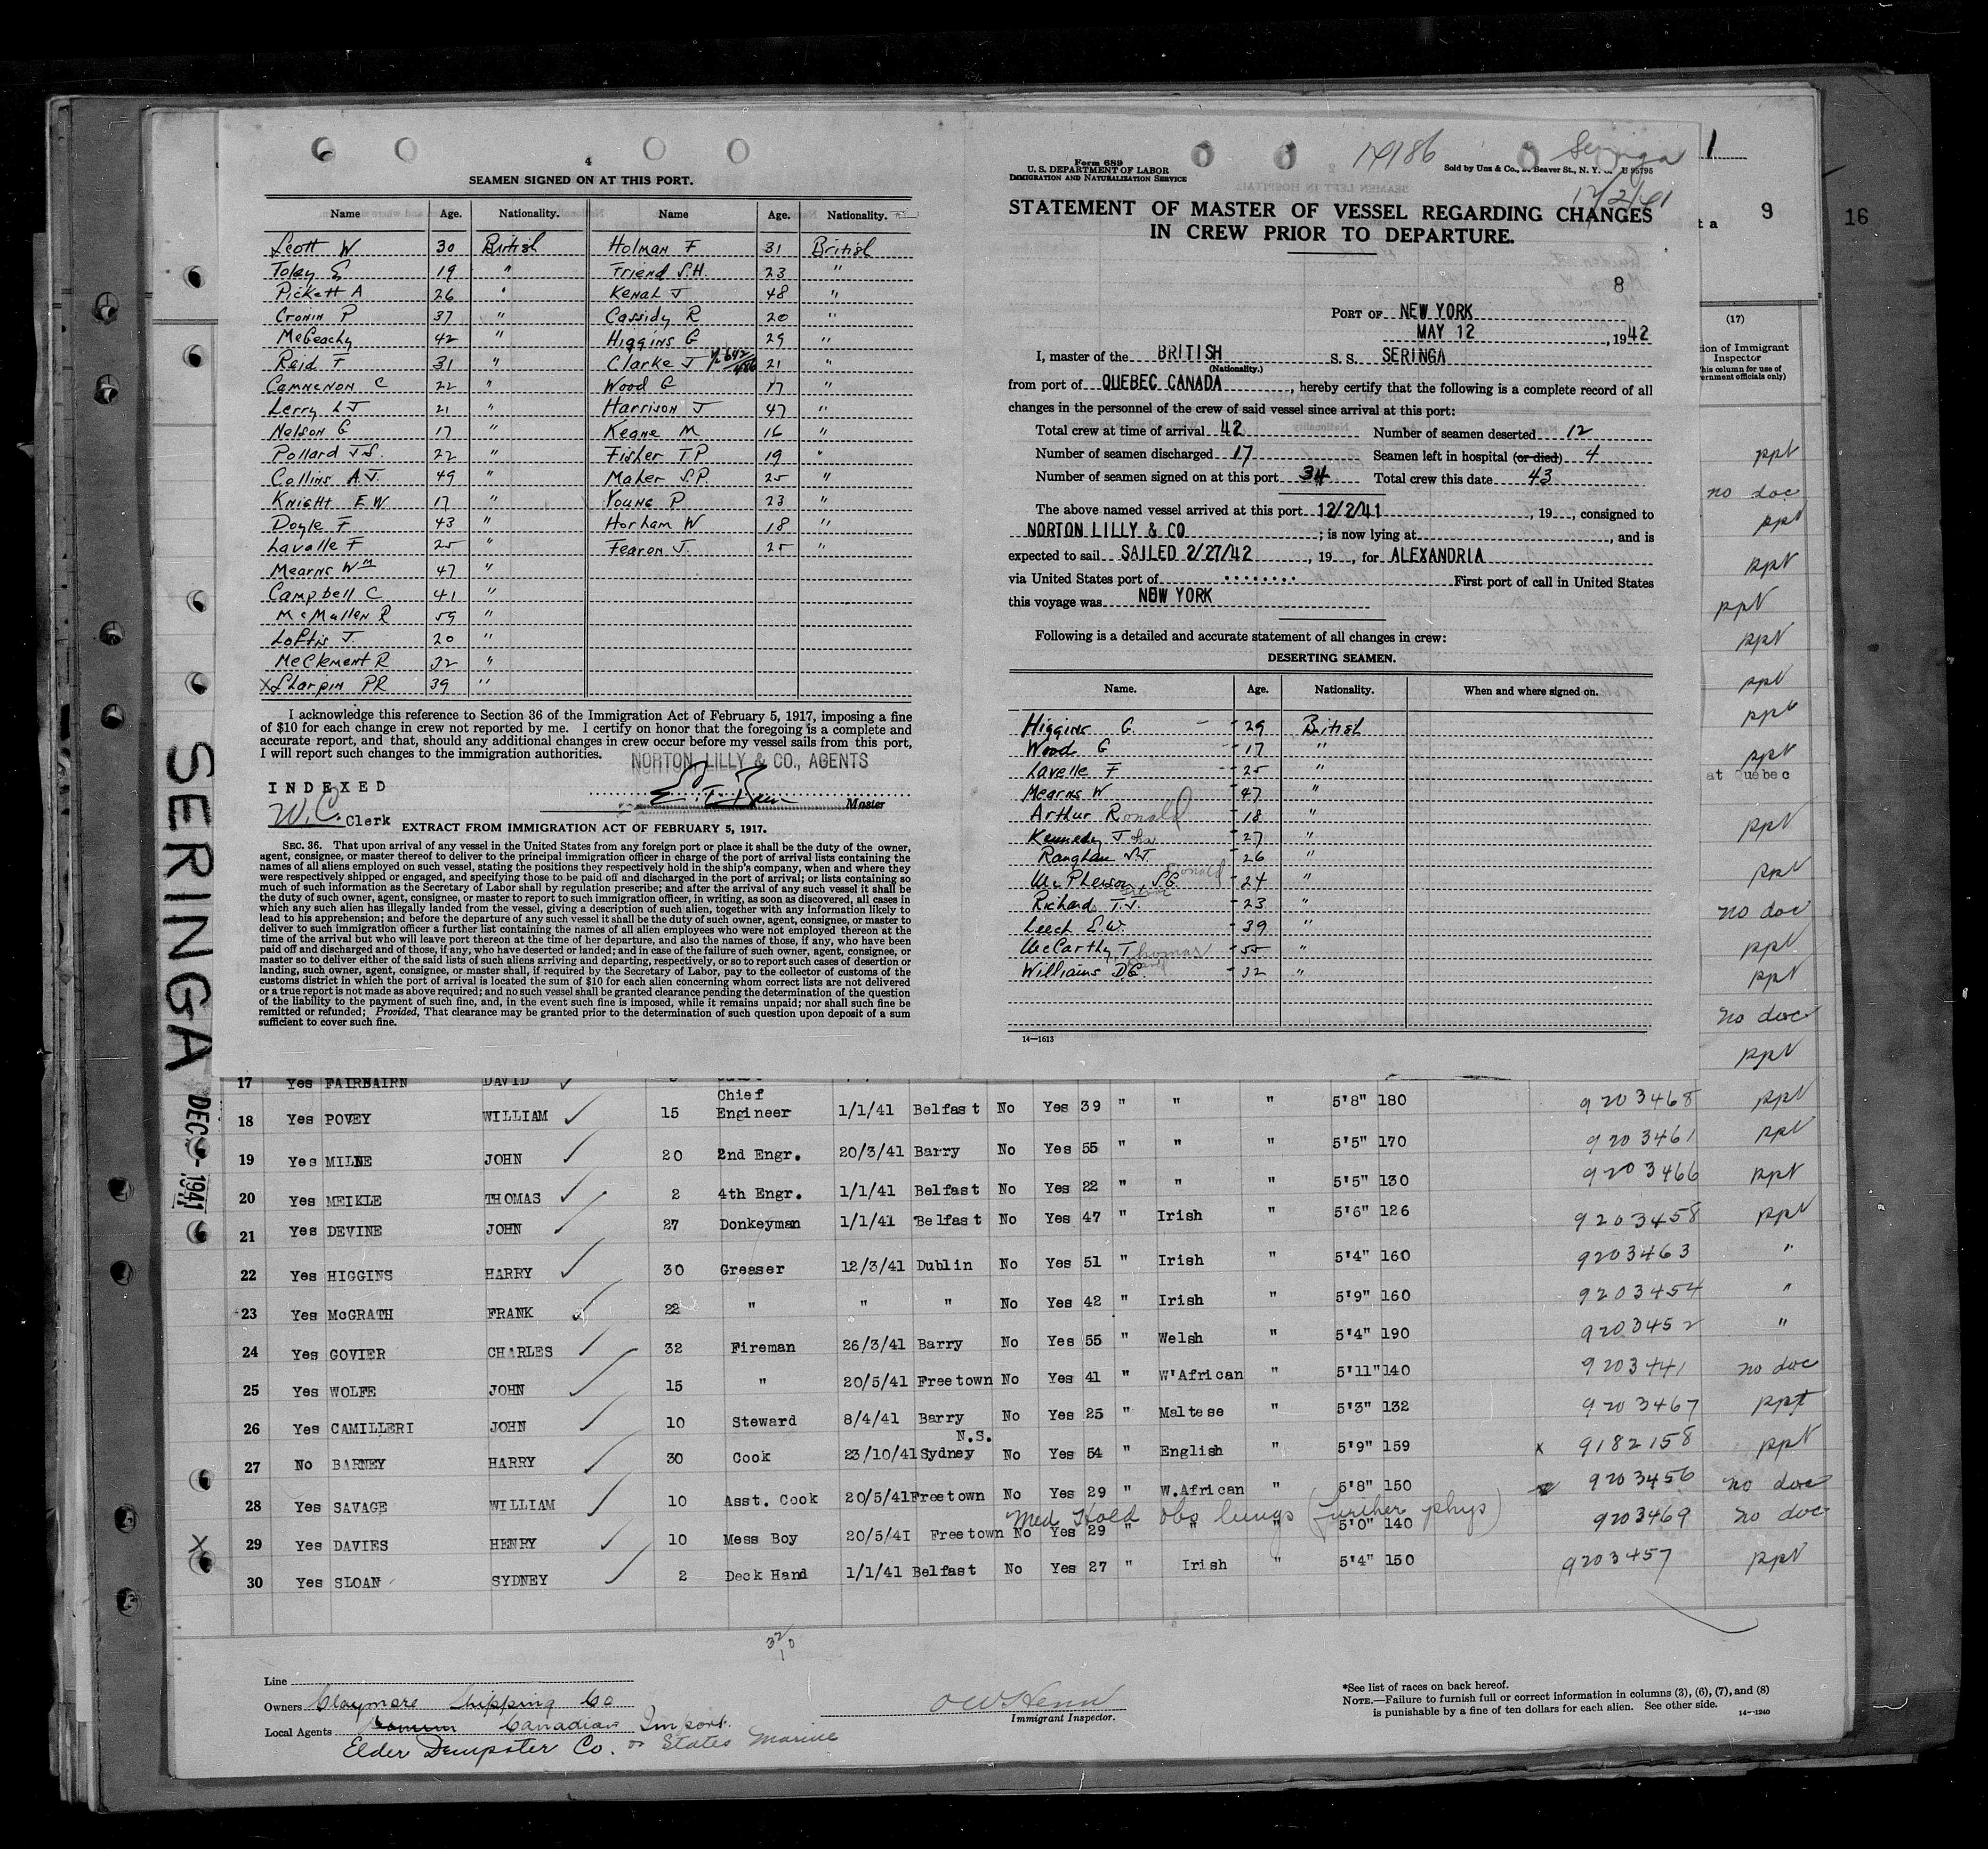 4
SEAMEN SIGNED ON AT THIS PORT.
Name Age. Nationality. Name Age. Nationality.
Scott W 30 British Holman F 31 British
Toley S 19 " Friend S.H. 23 "
Pickett A 26 " Kenal J 48 "
Cronin P 37 " Cassidy R 20 "
McGeachy 42 " Higgins G 29 "
Reid F 31 " Clarke J 21 "
Camnenon C 22 " Wood G 17 "
Lerry L J 21 " Harrison J 47 "
Nelson G 17 " Keane M 16 "
Pollard J S. 22 " Fisher T.P 19 "
Collins A.J. 49 " Maher S.P. 25 "
Knight E W 17 " Young P 23 "
Doyle F 43 " Horham W 18 "
Lavalle F 25 " Fearon J. 25 "
Mearns Wm 47 "
Campbell C 41 "
McMullen R 59 "
Loftis J. 20 "
McClement R 32 "
X Sharpin PR 39 "
I acknowledge this reference to Section 36 of the Immigration Act of February 5, 1917, imposing a fine
of $10 for each change in crew not reported by me. I certify on honor that the foregoing is a complete and
accurate report, and that, should any additional changes in crew occur before my vessel sails from this port,
I will report such changes to the immigration authorities.
NORTON, LILLY & CO., AGENTS
INDEXED
Master
W.C. Clerk
EXTRACT FROM IMMIGRATION ACT OF FEBRUARY 5, 1917.
SEC. 36. That upon arrival of any vessel in the United States from any foreign port or place it shall be the duty of the owner,
agent, consignee, or master thereof to deliver to the principal immigration officer in charge of the port of arrival lists containing the
names of all aliens employed on such vessel, stating the positions they respectively hold in the ship's company, when and where they
were respectively shipped or engaged, and specifying those to be paid off and discharged in the port of arrival; or lists containing so
much of such information as the Secretary of Labor shall by regulation prescribe; and after the arrival of any such vessel it shall be
the duty of such owner, agent, consignee, or master to report to such immigration officer, in writing, as soon as discovered, all cases in
which any such alien has illegally landed from the vessel, giving a description of such alien, together with any information likely to
lead to his apprehension; and before the departure of any such vessel it shall be the duty of such owner, agent, consignee, or master to
deliver to such immigration officer a further list containing the names of all alien employees who were not employed thereon at the
time of the arrival but who will leave port thereon at the time of her departure, and also the names of those, if any, who have been
paid off and discharged and of those, if any, who have deserted or landed; and in case of the failure of such owner, agent, consignee, or
master so to deliver either of the said lists of such aliens arriving and departing, respectively, or so to report such cases of desertion or
landing, such owner, agent, consignee, or master shall, if required by the Secretary of Labor, pay to the collector of customs of the
customs district in which the port of arrival is located the sum of $10 for each alien concerning whom correct lists are not delivered
or a true report is not made as above required; and no such vessel shall be granted clearance pending the determination of the question
of the liability to the payment of such fine, and, in the event such fine is imposed, while it remains unpaid; nor shall such fine be
remitted or refunded; Provided, That clearance may be granted prior to the determination of such question upon deposit of a sum
sufficient to cover such fine.
Form 689
U. S. DEPARTMENT OF LABOR
IMMIGRATION AND NATURALIZATION SERVICE
14186
Seringa
Sold by Unz & Co., Beaver St., N. Y. C. U 95795
12/2/41
STATEMENT OF MASTER OF VESSEL REGARDING CHANGES
IN CREW PRIOR TO DEPARTURE.
8
PORT OF NEW YORK
MAY 12, 1942
I, master of the BRITISH S. S. SERINGA
(Nationality.)
from port of QUEBEC CANADA, hereby certify that the following is a complete record of all
changes in the personnel of the crew of said vessel since arrival at this port:
Total crew at time of arrival 42 Number of seamen deserted 12
Number of seamen discharged 17 Seamen left in hospital (or died) 4
Number of seamen signed on at this port 34 Total crew this date 43
The above named vessel arrived at this port 12/2/41, 19, consigned to
NORTON LILLY & CO; is now lying at, and is
expected to sail SAILED 2/27/42, 19, for ALEXANDRIA
via United States port of ........ First port of call in United States
this voyage was NEW YORK
Following is a detailed and accurate statement of all changes in crew:
DESERTING SEAMEN.
Name. Age. Nationality. When and where signed on.
Higgins G. 29 British
Wood G 17 "
Lavelle F 25 "
Mearns W 47 "
Arthur Ronald 18 "
Kennedy John 27 "
Ranghan S.J. 26 "
McPherson S.G. 24 "
Richard T.J. 23 "
Leech S.W. 39 "
McCarthy Thomas 55 "
Williams D.G. 32 "
14—1613
1
9
16
(17)
Inspector
SERINGA
DEC 2 - 1941
ppt
no doc
ppt
ppt
ppt
ppt
ppt
ppt
ppt
at Quebec
ppt
ppt
no doc
ppt
ppt
no doc
ppt
17 Yes FAIRBAIRN DAVID
18 Yes POVEY WILLIAM 15 Chief Engineer 1/1/41 Belfast No Yes 39 " " " 5'8" 180 9203468 ppt
19 Yes MILNE JOHN 20 2nd Engr. 20/3/41 Barry No Yes 55 " " " 5'5" 170 9203461 ppt
20 Yes MEIKLE THOMAS 2 4th Engr. 1/1/41 Belfast No Yes 22 " " " 5'5" 130 9203466 ppt
21 Yes DEVINE JOHN 27 Donkeyman 1/1/41 Belfast No Yes 47 " Irish " 5'6" 126 9203458 ppt
22 Yes HIGGINS HARRY 30 Greaser 12/3/41 Dublin No Yes 51 " Irish " 5'4" 160 9203463 "
23 Yes McGRATH FRANK 22 " " " No Yes 42 " Irish " 5'9" 160 9203454 "
24 Yes GOVIER CHARLES 32 Fireman 26/3/41 Barry No Yes 55 " Welsh " 5'4" 190 9203452 "
25 Yes WOLFE JOHN 15 " 20/5/41 Freetown No Yes 41 " W'African " 5'11" 140 9203441 no doc
26 Yes CAMILLERI JOHN 10 Steward 8/4/41 Barry No Yes 25 " Maltese " 5'3" 132 9203467 ppt
27 No BARNEY HARRY 30 Cook 23/10/41 Sydney N.S. No Yes 54 " English " 5'9" 159 x 9182158 ppt
28 Yes SAVAGE WILLIAM 10 Asst. Cook 20/5/41 Freetown No Yes 29 " W.African " 5'8" 150 9203456 no doc
Med Hold obs lungs (further phys)
X 29 Yes DAVIES HENRY 10 Mess Boy 20/5/41 Freetown No Yes 29 " " " 5'0" 140 9203469 no doc
30 Yes SLOAN SYDNEY 2 Deck Hand 1/1/41 Belfast No Yes 27 " Irish " 5'4" 150 9203457 ppt
Line
Owners Claymore Shipping Co
Local Agents Canadian Import.
Elder Dempster Co. or States Marine
Immigrant Inspector.
*See list of races on back hereof.
NOTE.—Failure to furnish full or correct information in columns (3), (6), (7), and (8)
is punishable by a fine of ten dollars for each alien. See other side.
14—1240